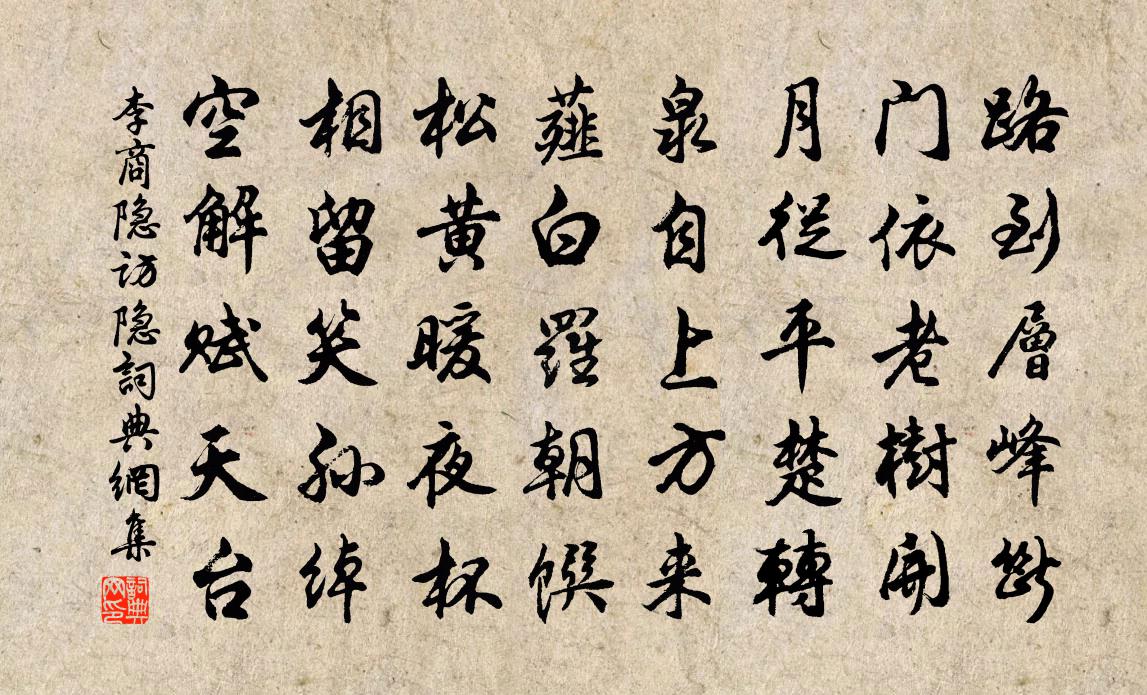 路到層峰斷
門依老樹開
月從平楚轉
泉自上方来
薤白羅朝饌
松黃暖夜杯
相留笑孙綽
空解赋天台
李商隐访隐詞典網集
詞典网印